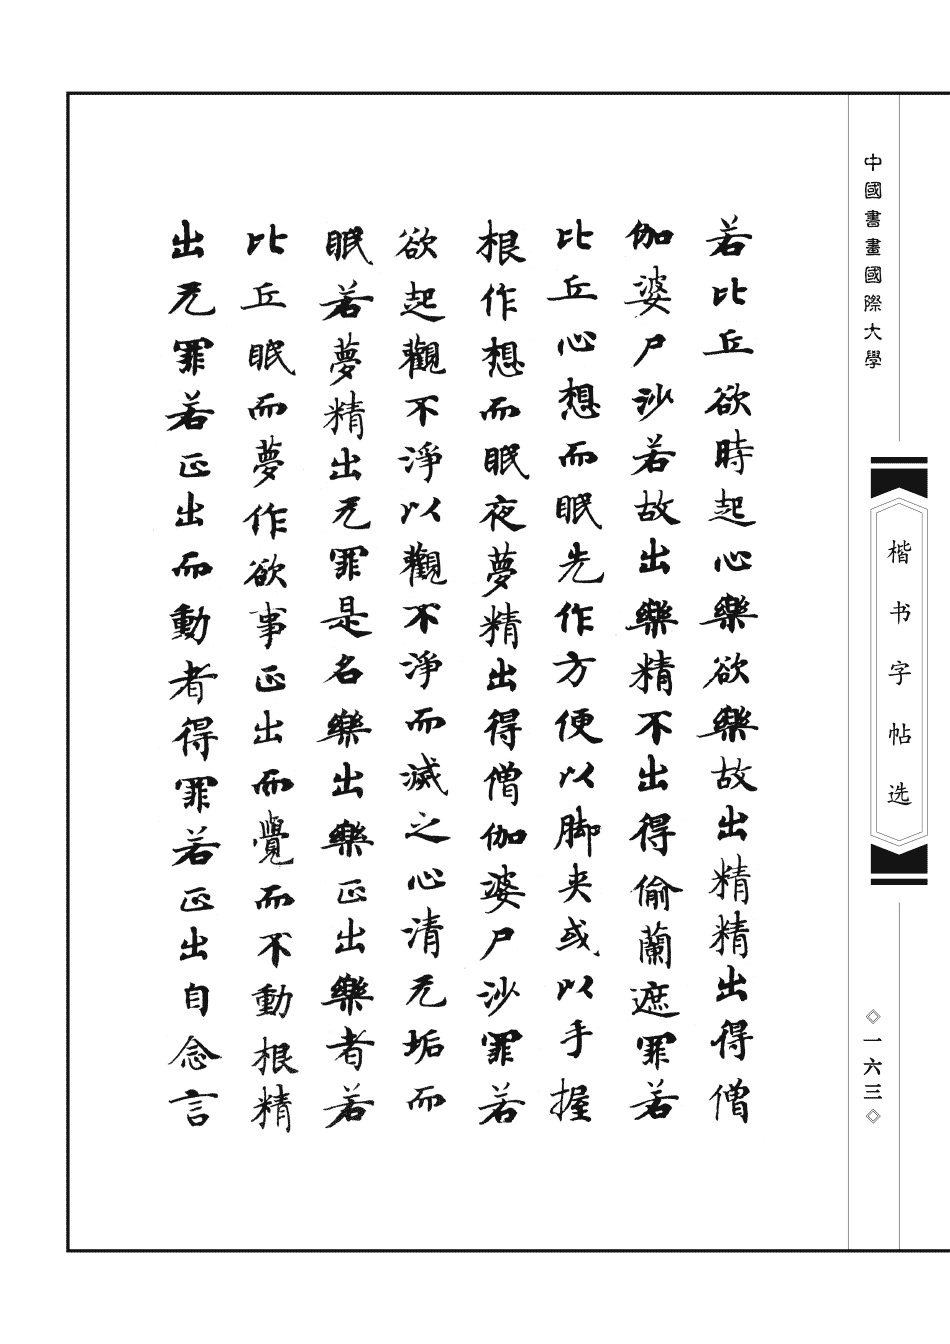 中國書畫國際大學
楷书字帖选
◇一六三◇
若比丘欲時起心樂欲樂故出精精出得僧
伽婆尸沙若故出樂精不出得偷蘭遮罪若
比丘心想而眠先作方便以脚夹或以手握
根作想而眠夜夢精出得僧伽婆尸沙罪若
欲起觀不淨以觀不淨而滅之心清无垢而
眠若夢精出无罪是名樂出樂正出樂者若
比丘眠而夢作欲事正出而覺而不動根精
出无罪若正出而動者得罪若正出自念言